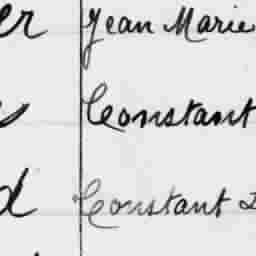 er Jean Marie
Constant
d Constant